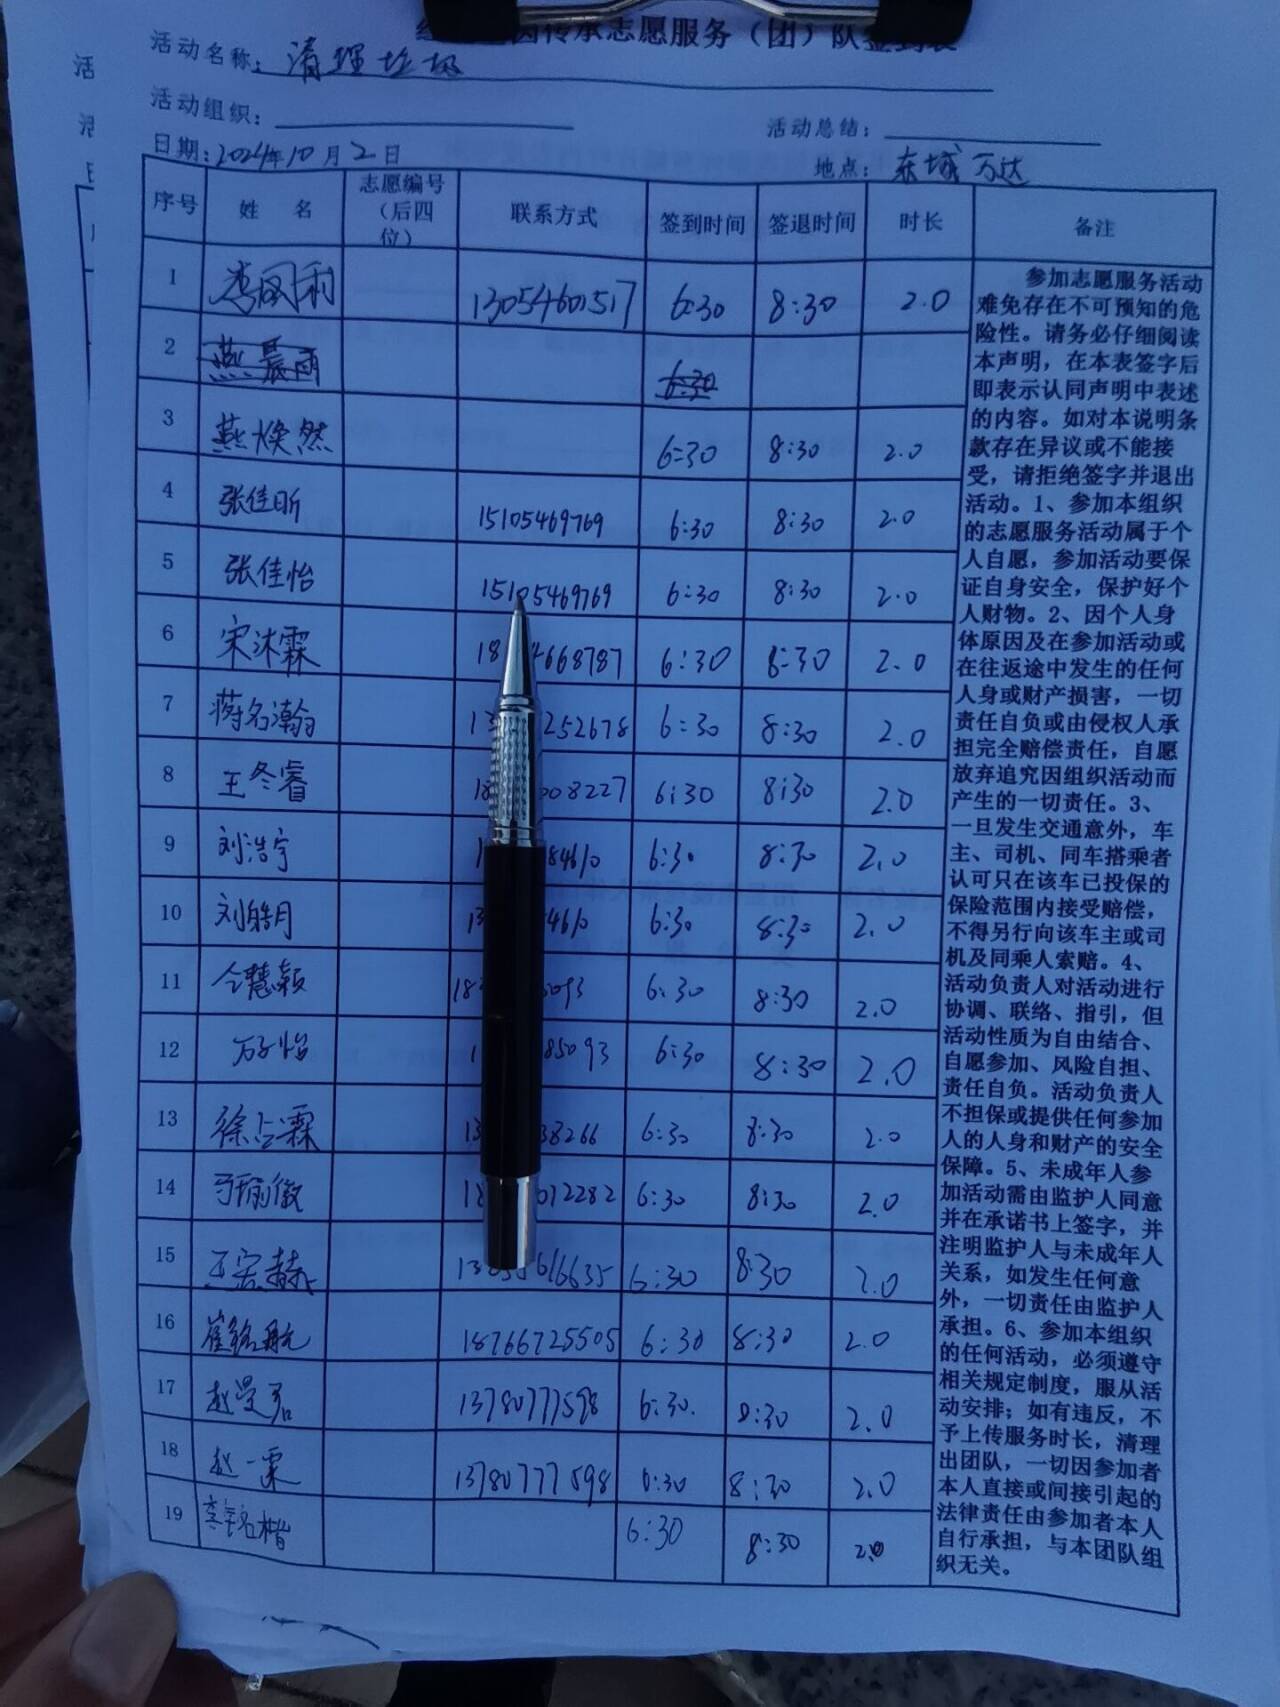 传承志愿服务（团）队签到表
活动名称：清理垃圾
活动组织：
活动总结：
日期：2024年10月2日
地点：东城万达
序号 姓名 志愿编号（后四位） 联系方式 签到时间 签退时间 时长 备注
1 李凤利 13054601517 6:30 8:30 2.0
2 燕晨雨 6:30
3 燕焕然 6:30 8:30 2.0
4 张佳昕 15105469769 6:30 8:30 2.0
5 张佳怡 15105469769 6:30 8:30 2.0
6 宋沐霖 4668787 6:30 8:30 2.0
7 蒋名瀚 252678 6:30 8:30 2.0
8 王冬睿 008227 6:30 8:30 2.0
9 刘浩宇 84610 6:30 8:30 2.0
10 刘皓月 4610 6:30 8:30 2.0
11 仝慧颖 5093 6:30 8:30 2.0
12 万子怡 85093 6:30 8:30 2.0
13 38266 6:30 8:30 2.0
14 012282 6:30 8:30 2.0
15 王宏赫 616635 6:30 8:30 2.0
16 崔铭航 18766725505 6:30 8:30 2.0
17 赵曼君 13780777598 6:30 8:30 2.0
18 赵一霖 13780777598 6:30 8:30 2.0
19 李铭楷 6:30 8:30 2.0
参加志愿服务活动
难免存在不可预知的危
险性。请务必仔细阅读
本声明，在本表签字后
即表示认同声明中表述
的内容。如对本说明条
款存在异议或不能接
受，请拒绝签字并退出
活动。1、参加本组织
的志愿服务活动属于个
人自愿，参加活动要保
证自身安全，保护好个
人财物。2、因个人身
体原因及在参加活动或
在往返途中发生的任何
人身或财产损害，一切
责任自负或由侵权人承
担完全赔偿责任，自愿
放弃追究因组织活动而
产生的一切责任。3、
一旦发生交通意外，车
主、司机、同车搭乘者
认可只在该车已投保的
保险范围内接受赔偿，
不得另行向该车主或司
机及同乘人索赔。4、
活动负责人对活动进行
协调、联络、指引，但
活动性质为自由结合、
自愿参加、风险自担、
责任自负。活动负责人
不担保或提供任何参加
人的人身和财产的安全
保障。5、未成年人参
加活动需由监护人同意
并在承诺书上签字，并
注明监护人与未成年人
关系，如发生任何意
外，一切责任由监护人
承担。6、参加本组织
的任何活动，必须遵守
相关规定制度，服从活
动安排；如有违反，不
予上传服务时长，清理
出团队，一切因参加者
本人直接或间接引起的
法律责任由参加者本人
自行承担，与本团队组
织无关。